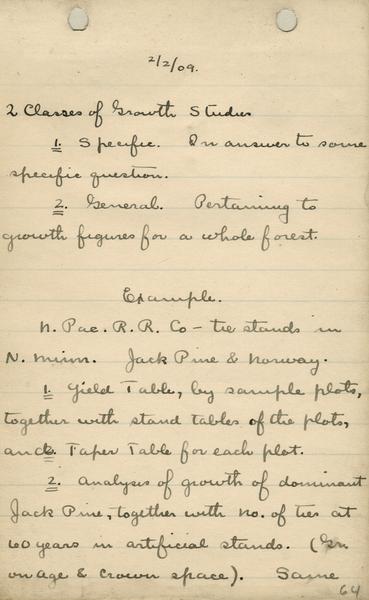 2/2/09.
2 Classes of Growth Studies
1. Specific. In answer to some
specific question.
2. General. Pertaining to
growth figures for a whole forest.
Example.
N. Pac. R.R. Co - tie stands in
N. Minn. Jack Pine & Norway.
1. Yield Table, by sample plots,
together with stand tables of the plots,
and Taper Table for each plot.
2. Analysis of growth of dominant
Jack Pine, together with no. of ties at
60 years in artificial stands. (Gr.
on age & crown space). Same
64